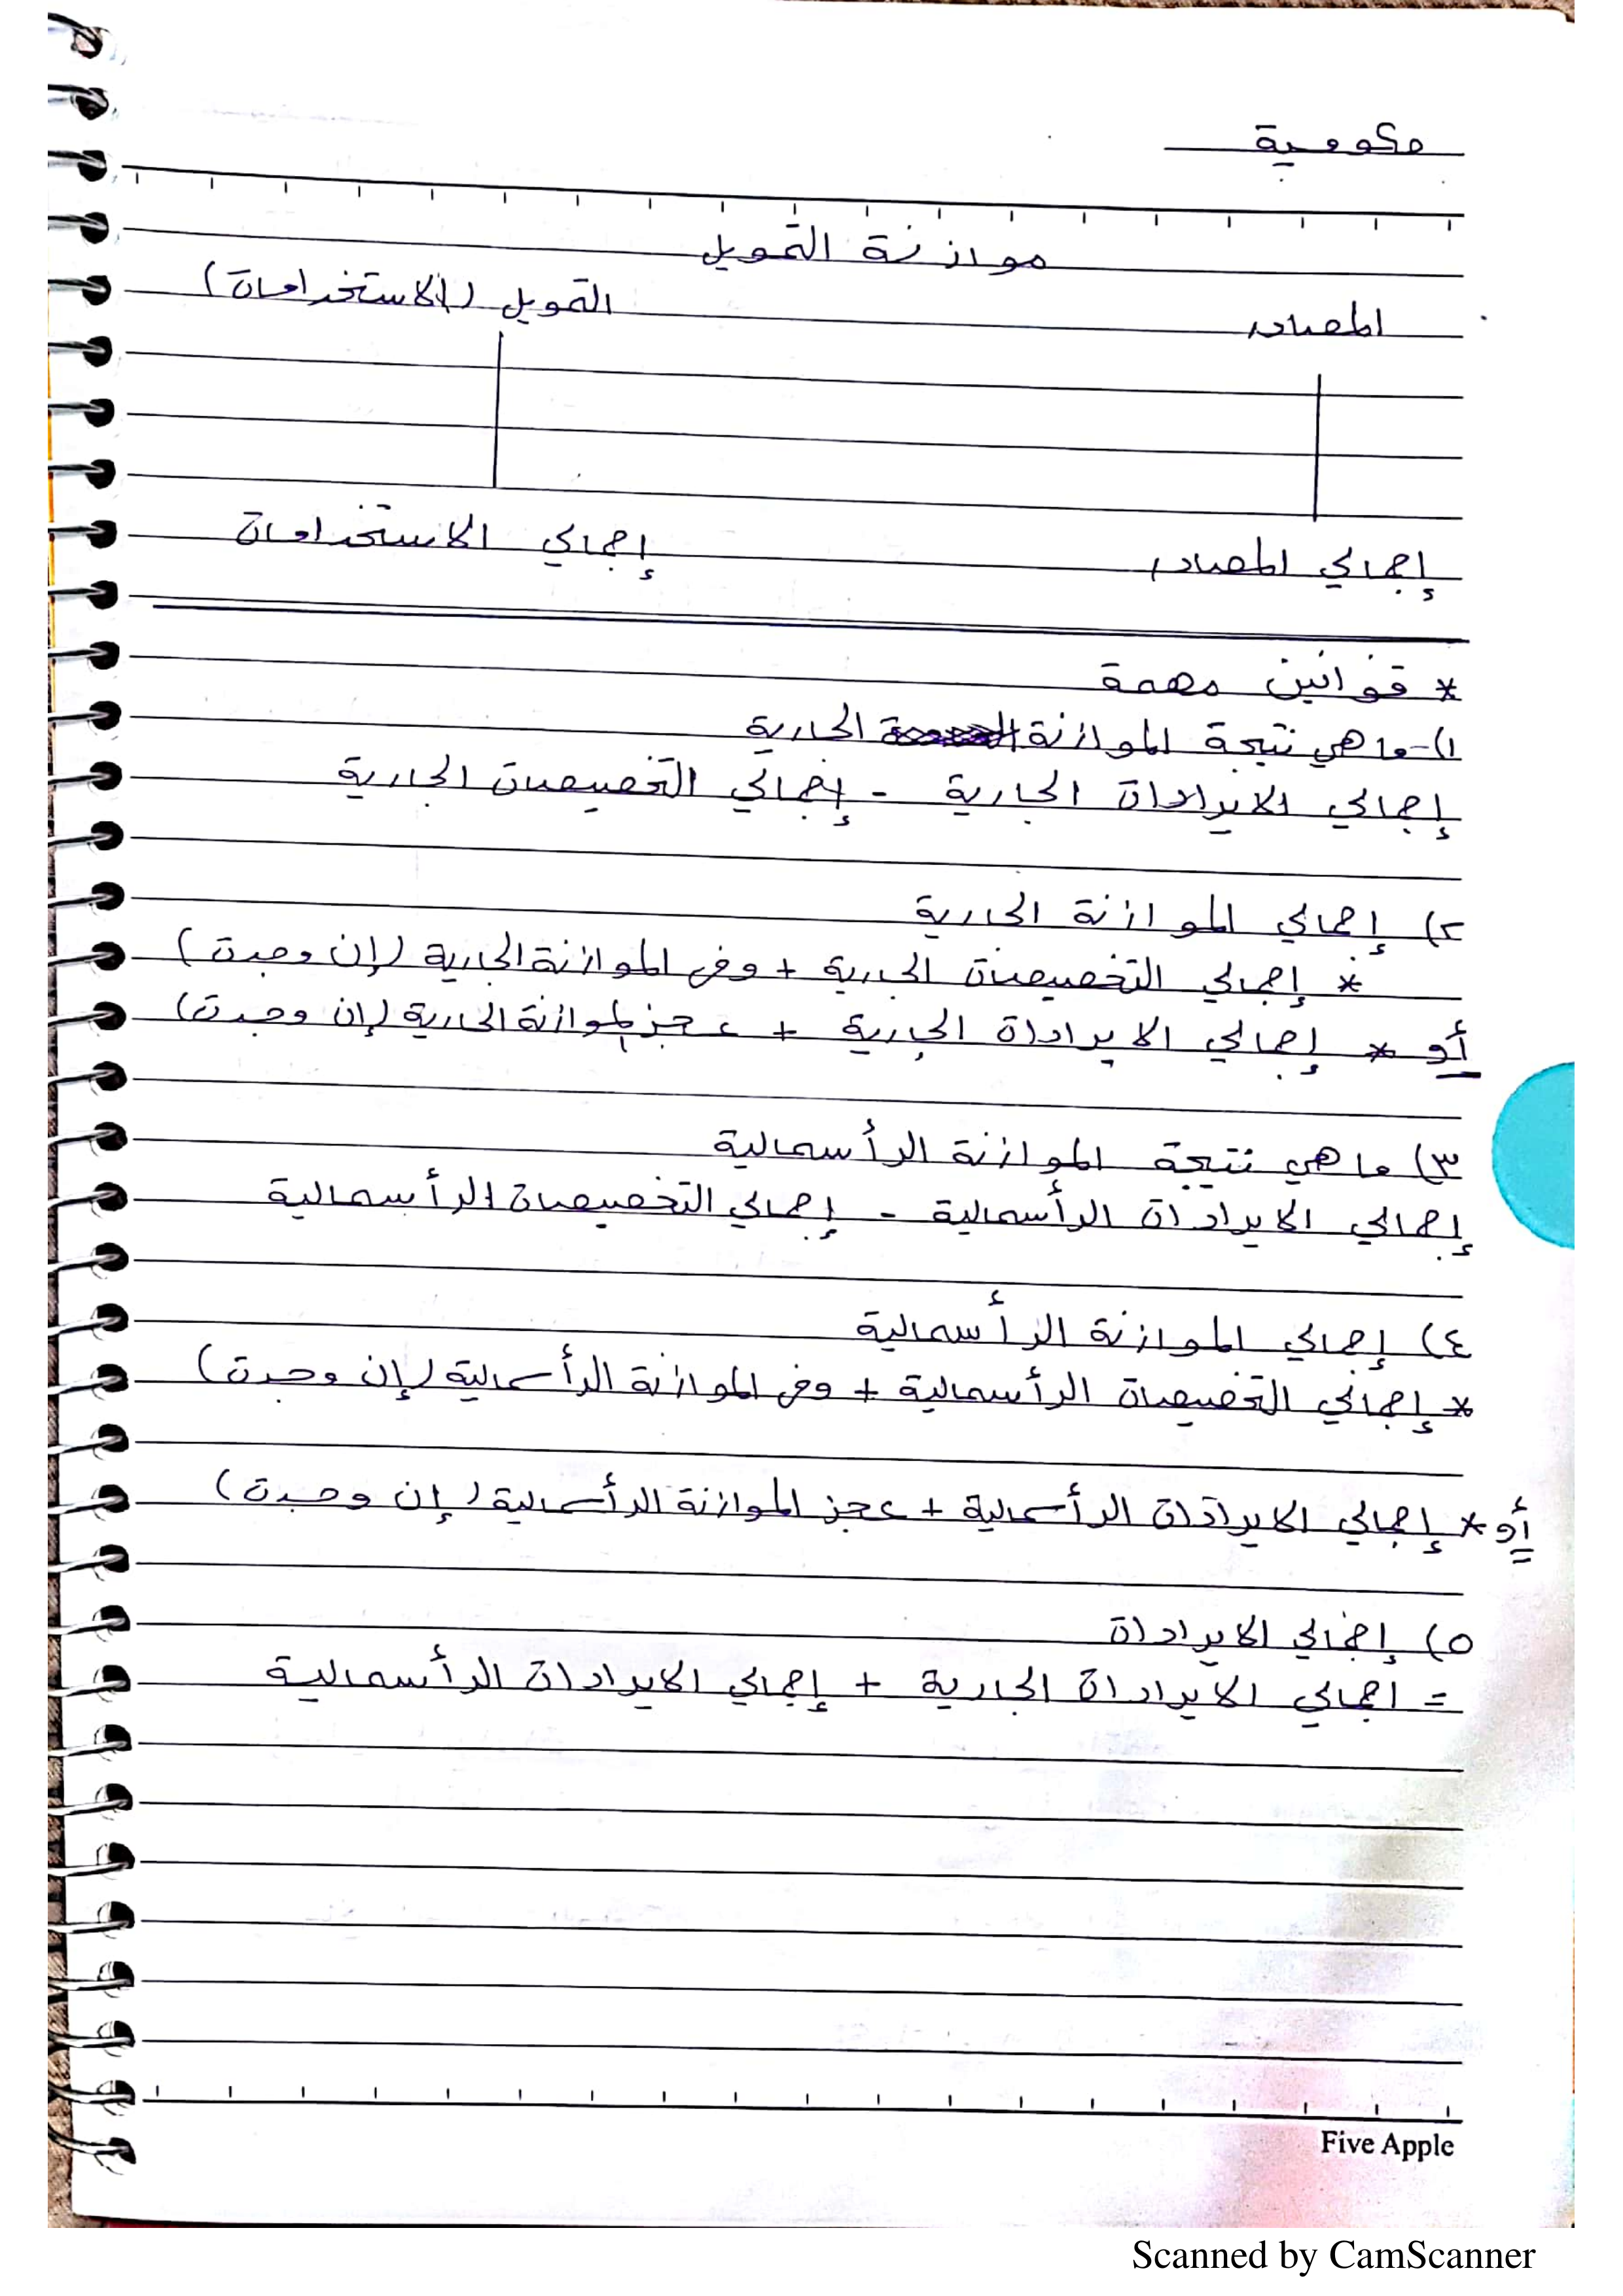 حكومية
موازنة التمويل
المصادر التمويل (الاستخدامات)
إجمالي المصادر إجمالي الاستخدامات
* قوانين مهمة
١)- ما هي نتيجة الموازنة الجارية
إجمالي الايرادات الجارية - إجمالي التخصيصات الجارية
٢) إجمالي الموازنة الجارية
* إجمالي التخصيصات الجارية + وفر الموازنة الجارية (إن وجدت)
أو * إجمالي الايرادات الجارية + عجز الموازنة الجارية (إن وجدت)
٣) ما هي نتيجة الموازنة الرأسمالية
إجمالي الايرادات الرأسمالية - إجمالي التخصيصات الرأسمالية
٤) إجمالي الموازنة الرأسمالية
* إجمالي التخصيصات الرأسمالية + وفر الموازنة الرأسمالية (إن وجدت)
أو * إجمالي الايرادات الرأسمالية + عجز الموازنة الرأسمالية (إن وجدت)
٥) إجمالي الايرادات
= اجمالي الايرادات الجارية + إجمالي الايرادات الرأسمالية
Five Apple
Scanned by CamScanner